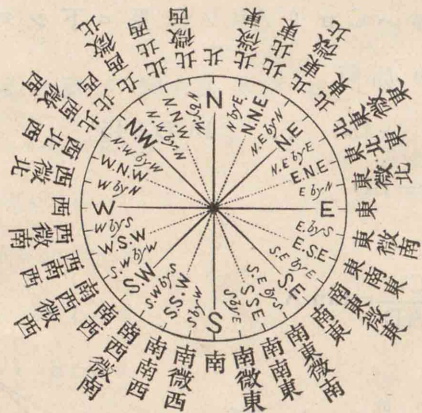 北
北微東
北北東
北東微北
北東
北東微東
東北東
東微北
東
東微南
東南東
南東微東
南東
南東微南
南南東
南微東
南
南微西
南南西
南西微南
南西
南西微西
西南西
西微南
西
西微北
西北西
北西微西
北西
北西微北
北北西
北微西
N
N by E
N.N.E
N.E by N
N.E
N.E by E
E.N.E
E by N
E
E.by S
E.S.E
S.E by E
S.E
S.E by S
S.S.E
S by E
S
S by W
S.S.W
S.W by S
S.W
S.W by W
W.S.W
W by S
W
W by N
W.N.W
N.W by W
NW
N.W by N
N.N.W
N by W